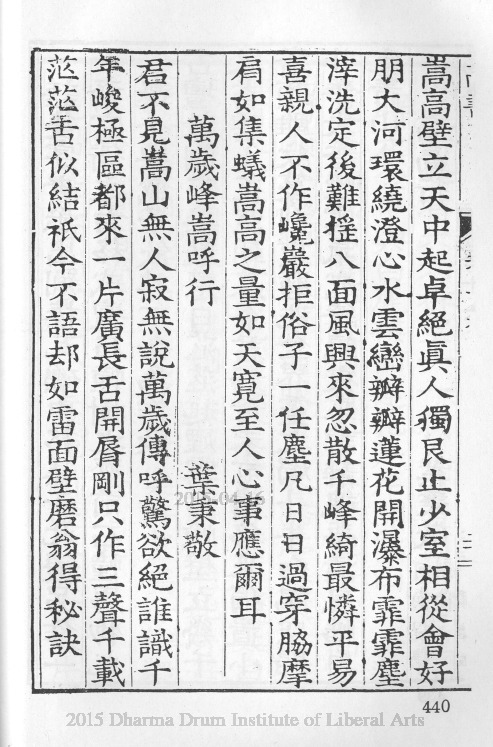 嵩高壁立天中起卓絕眞人獨艮止少室相從會好
朋大河環繞澄心水雲巒瓣瓣蓮花開瀑布霏霏塵
滓洗定後難搖八面風興來忽散千峰綺最憐平易
喜親人不作巉巖拒俗子一任塵凡日日過穿脇摩
肩如集蟻嵩高之量如天寬至人心事應爾耳
萬歲峰嵩呼行 葉秉敬
君不見嵩山無人寂無說萬歲傳呼驚欲絕誰識千
年峻極區都來一片廣長舌開脣剛只作三聲千載
茫茫舌似結祇今不語却如雷面壁磨翁得秘訣
440
2015 Dharma Drum Institute of Liberal Arts